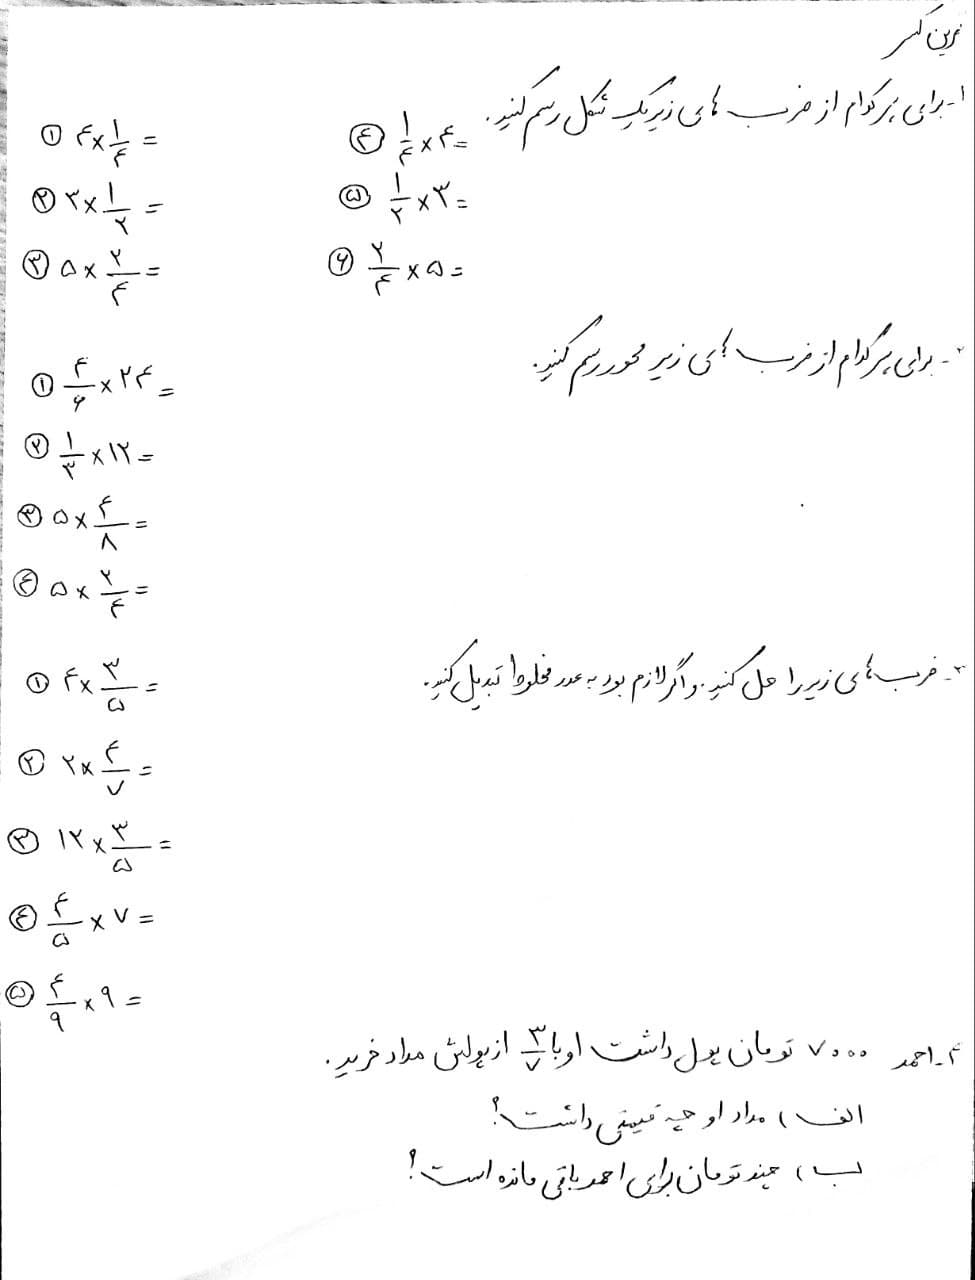 تمرین کسر
۱- برای هر کدام از ضرب های زیر یک شکل رسم کنید.
① ۴×۱/۴ =
④ ۱/۴×۴=
② ۳×۱/۲ =
⑤ ۱/۲×۳=
③ ۵×۲/۴ =
⑥ ۲/۴×۵=
۲- برای هر کدام از ضرب های زیر محور رسم کنید.
① ۴/۶×۲۴=
② ۱/۳×۱۲=
③ ۵×۴/۸=
④ ۵×۲/۴=
۳- ضرب های زیر را حل کنید. و اگر لازم بود به عدد مخلوط تبدیل کنید.
① ۴×۳/۵=
② ۲×۴/۷=
③ ۱۲×۳/۵=
④ ۴/۵×۷=
⑤ ۴/۹×۹=
۴- احمد ۷۰۰۰ تومان پول داشت او با ۳/۷ از پولش مداد خرید.
الف) مداد او چه قیمتی داشت؟
ب) چند تومان برای احمد باقی مانده است؟